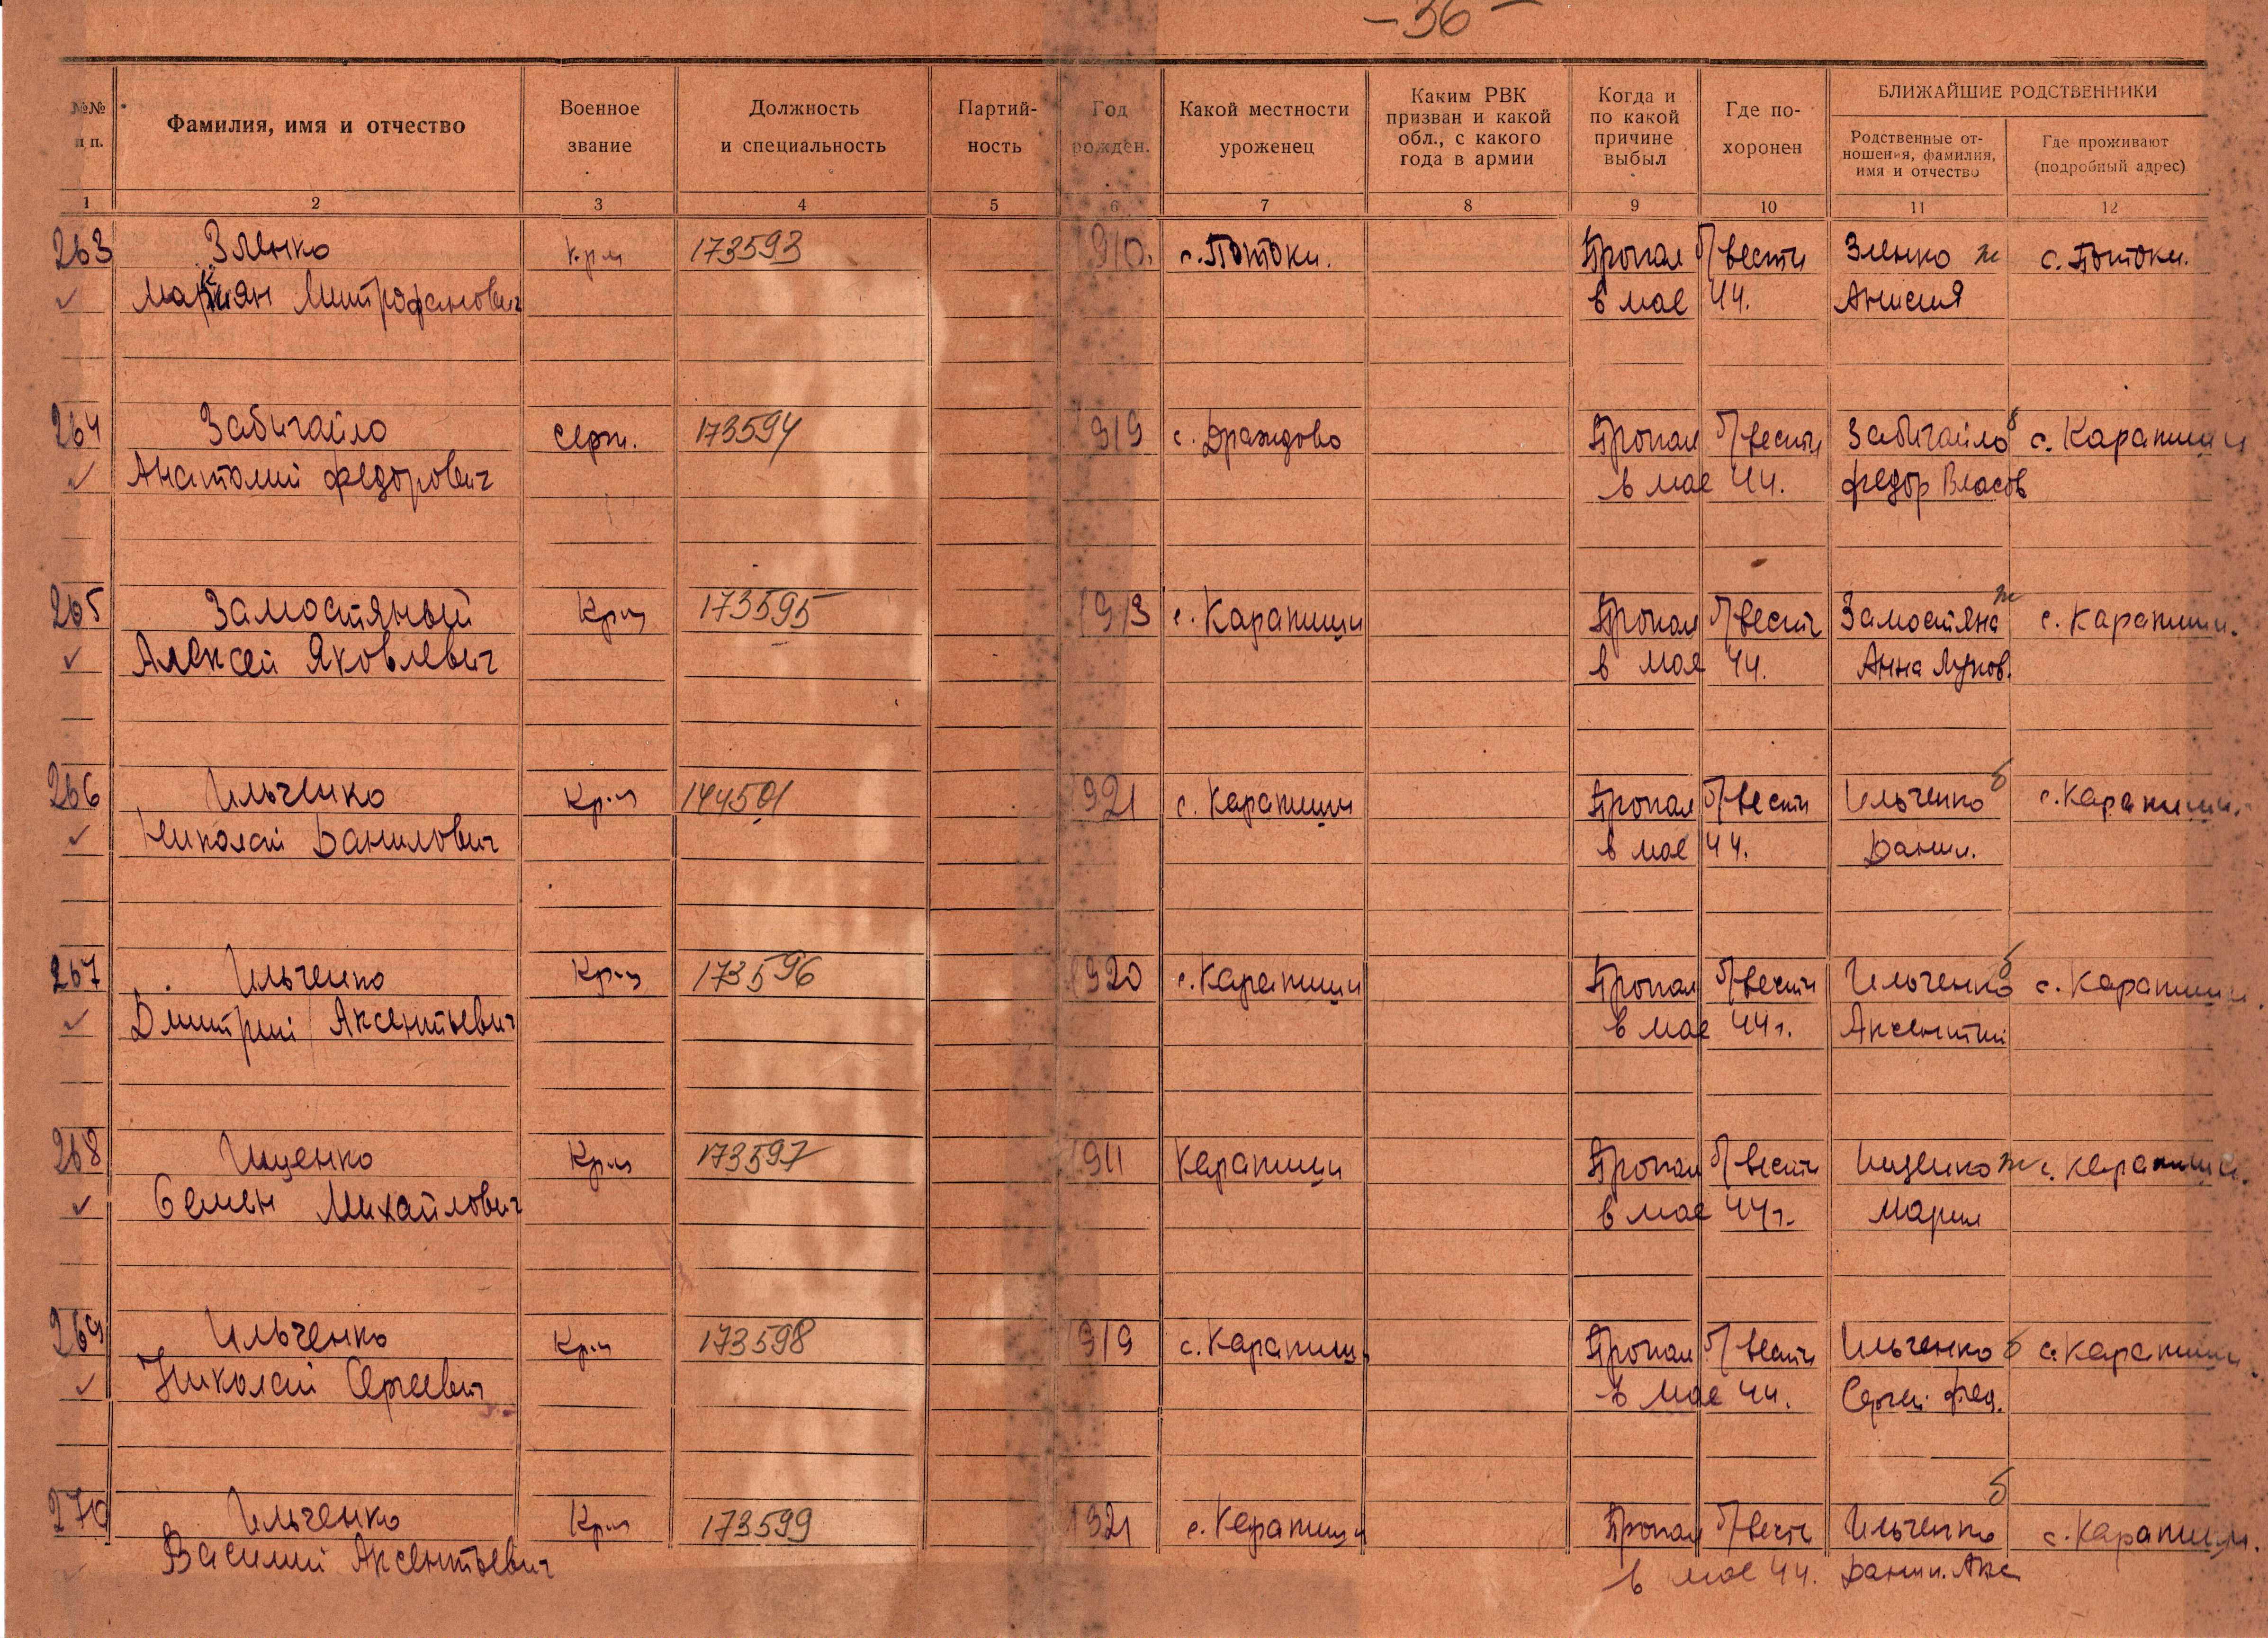 – 36 –
№№ п п.
Фамилия, имя и отчество
Военное звание
Должность и специальность
Партий-ность
Год рожден.
Какой местности уроженец
Каким РВК призван и какой обл., с какого года в армии
Когда и по какой причине выбыл
Где по-хоронен
БЛИЖАЙШИЕ РОДСТВЕННИКИ
Родственные от-ношения, фамилия, имя и отчество
Где проживают (подробный адрес)
1 2 3 4 5 6 7 8 9 10 11 12
263 Зленко кр-ц 173593 1910. с. Потоки. Пропал б/вести Зленко ж с. Потоки.
Митрофанович в мае 44. Анисия
264 Забигайло серж. 173594 1919 с. Драндово Пропал б/вести Забигайло с. Карапиши
Анатолий Федорович в мае 44. Федор Власов
265 Замостяный Кр-ц 173595 1913 с. Карапиши Пропал б/вести Замостяна ж с. Карапиши.
Алексей Яковлевич в мае 44. Анна Луков.
266 Ильченко Кр-ц 144501 1921 с. Карапиши Пропал б/вести Ильченко б с. Карапиши.
Николай Данилович в мае 44. Данил.
267 Ильченко Кр-ц 173596 1920 с. Карапиши Пропал б/вести Ильченко б с. Карапиши.
Дмитрий Аксентьевич в мае 44 г. Аксентий
268 Ищенко Кр-ц 173597 1911 Карапиши Пропал б/вести Ищенко ж с. Карапиши.
Семен Михайлович в мае 44 г. Мария
269 Ильченко Кр-ц 173598 1919 с. Карапиши Пропал б/вести Ильченко б с. Карапиши.
Николай Сергеевич в мае 44. Сергей Фед.
270 Ильченко Кр-ц 173599 1921 с. Карапиши Пропал б/весть Ильченко б с. Карапиши.
Василий Аксентьевич в мае 44. Данил. Акс